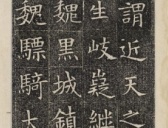 謂近天之
生岐嶷継
魏黒城鎮
魏驃騎大